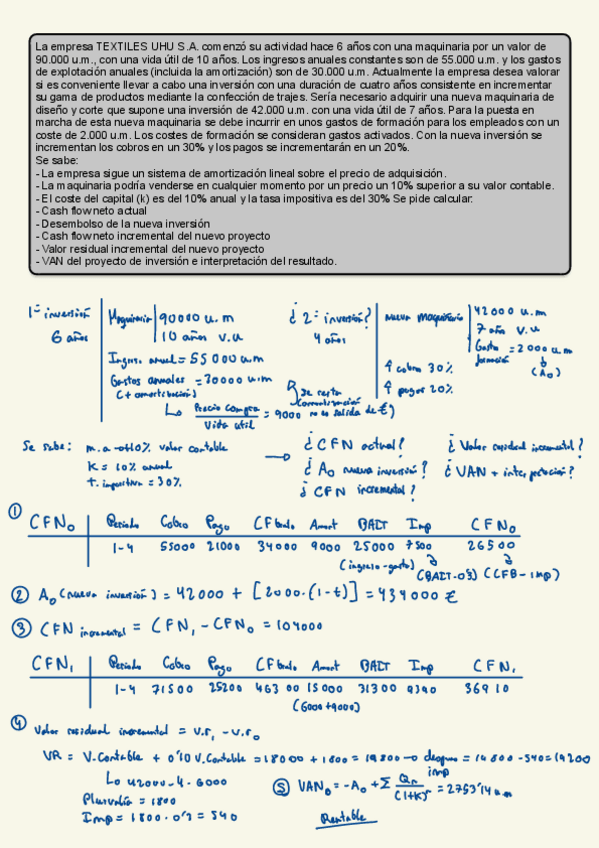 La empresa TEXTILES UHU S.A. comenzó su actividad hace 6 años con una maquinaria por un valor de
90.000 u.m., con una vida útil de 10 años. Los ingresos anuales constantes son de 55.000 u.m. y los gastos
de explotación anuales (incluida la amortización) son de 30.000 u.m. Actualmente la empresa desea valorar
si es conveniente llevar a cabo una inversión con una duración de cuatro años consistente en incrementar
su gama de productos mediante la confección de trajes. Sería necesario adquirir una nueva maquinaria de
diseño y corte que supone una inversión de 42.000 u.m. con una vida útil de 7 años. Para la puesta en
marcha de esta nueva maquinaria se debe incurrir en unos gastos de formación para los empleados con un
coste de 2.000 u.m. Los costes de formación se consideran gastos activados. Con la nueva inversión se
incrementan los cobros en un 30% y los pagos se incrementarán en un 20%.
Se sabe:
- La empresa sigue un sistema de amortización lineal sobre el precio de adquisición.
- La maquinaria podría venderse en cualquier momento por un precio un 10% superior a su valor contable.
- El coste del capital (k) es del 10% anual y la tasa impositiva es del 30% Se pide calcular:
- Cash flow neto actual
- Desembolso de la nueva inversión
- Cash flow neto incremental del nuevo proyecto
- Valor residual incremental del nuevo proyecto
- VAN del proyecto de inversión e interpretación del resultado.
1ª inversión Maquinaria 90000 u.m ¿ 2ª inversión? nueva maquinaria 42000 u.m.
6 años 10 años v.u 4 años 7 años v.u
Ingreso anual = 55000 u.m Gasto formación = 2000 u.m (A0)
Gastos anuales = 30000 u.m ↑ cobro 30%
(+ amortización) ↑ pagos 20%
Precio compra / Vida útil = 9000 no es salida de €)
Se sabe: m.a → +10% valor contable → ¿ CFN actual? ¿ Valor residual incremental?
K = 10% anual ¿ A0 nueva inversión? ¿ VAN + interpretación?
t. impositiva = 30% ¿ CFN incremental?
① CFN0 Periodo Cobro Pago CF bruto Amort BAIT Imp CFN0
1-4 55000 21000 34000 9000 25000 7500 26500
(ingreso-gasto) (BAIT·0'3) (CFB-imp)
② A0 (nueva inversión) = 42000 + [2000·(1-t)] = 434000 €
③ CFN incremental = CFN1 - CFN0 = 104000
CFN1 Periodo Cobro Pago CF bruto Amort BAIT Imp CFN1
1-4 71500 25200 46300 15000 31300 9390 36910
(6000+9000)
④ Valor residual incremental = v.r1 - v.r0
VR = V.Contable + 0'10 V.Contable = 18000 + 1800 = 19800 → despues imp = 19800 - 540 = 19200
42000 - 4 · 6000 ⑤ VAN0 = -A0 + Σ Qn / (1+K)ⁿ = 2753'14 u.m
Plusvalía = 1800
Imp = 1800 · 0'3 = 540 Rentable